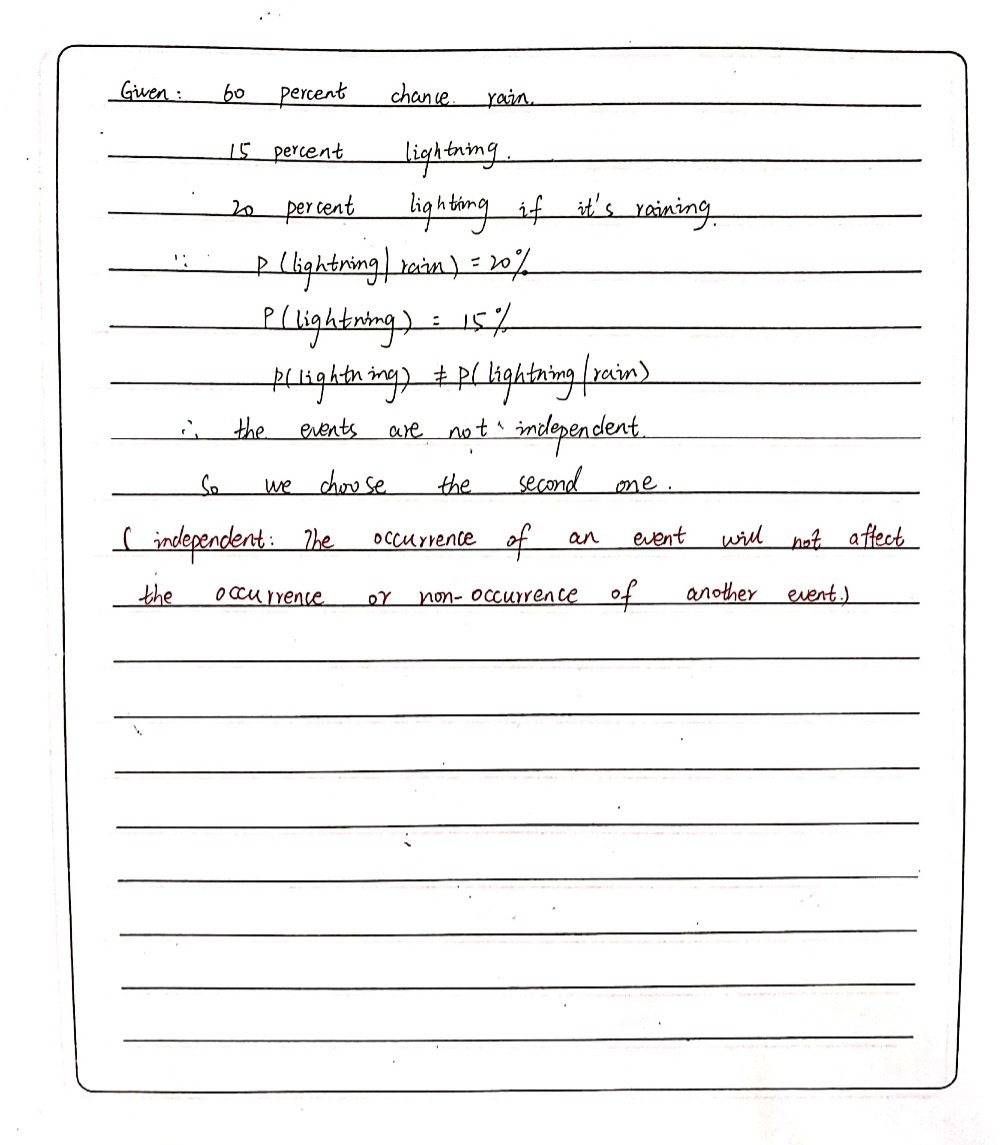 Given: 60 percent chance rain.
15 percent lightning.
20 percent lighting if it's raining.
∵ P(lightning|rain) = 20%
P(lightning) = 15%
P(lightning) ≠ P(lightning|rain)
∴ the events are not independent.
So we choose the second one.
( independent: The occurrence of an event will not affect
the occurrence or non-occurrence of another event.)